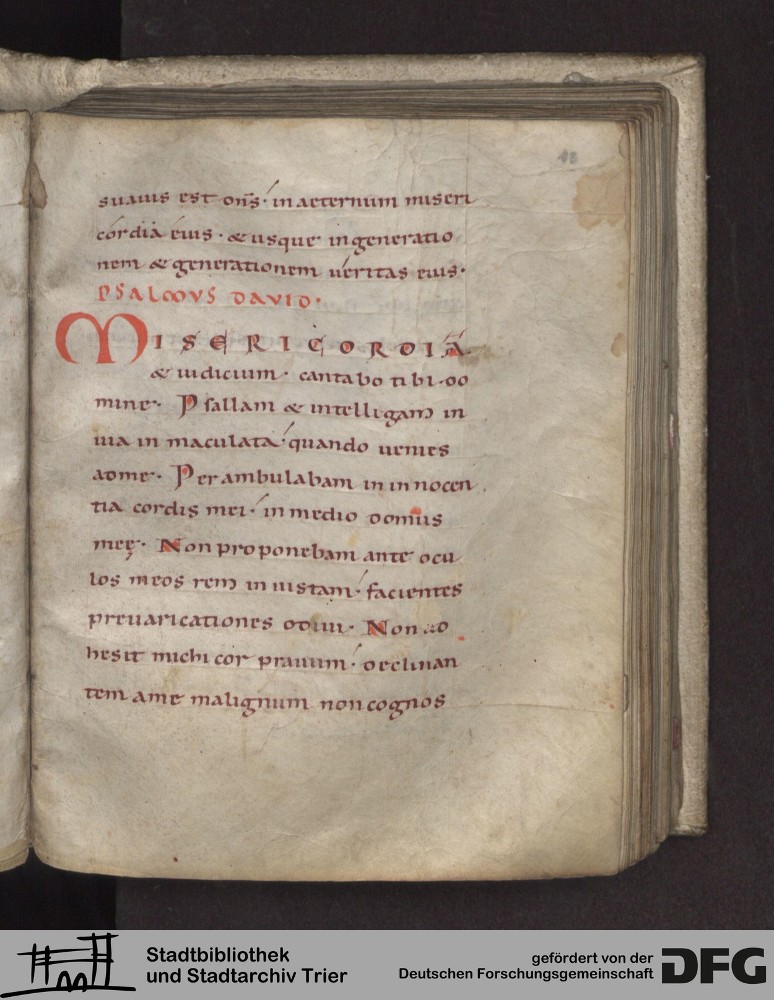 43
suauis est dn̄s· in aeternum miseri
cordia eius · & usque in generatio
nem & generationem ueritas eius·
PSALMVS DAVID·
MISERICORDIA
& iudicium · cantabo tibi · do
mine · Psallam & intelligam in
uia inmaculata · quando uenies
adme · Perambulabam in innocen
tia cordis mei · in medio domus
meę · Non proponebam ante ocu
los meos rem iniustam · facientes
preuaricationes odiui · Non ad
hesit michi cor prauum · declinan
tem ame malignum non cognos
Stadtbibliothek
und Stadtarchiv Trier
gefördert von der
Deutschen Forschungsgemeinschaft
DFG